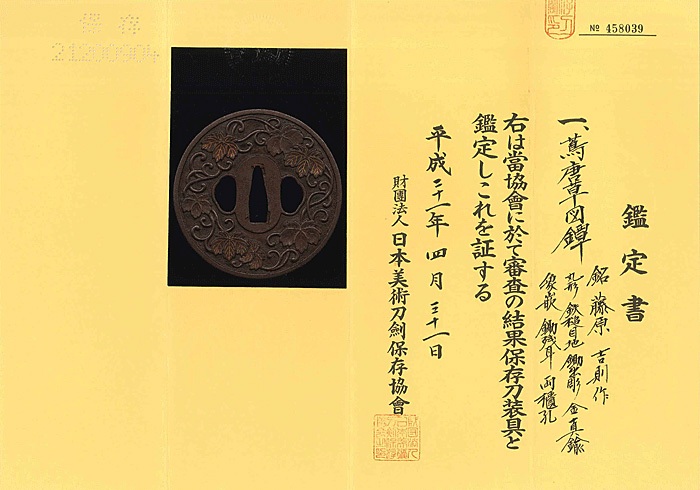 № 458039
鑑定書
一、蔦唐草図鐔
銘 藤原吉則作
丸形 鉄槌目地 鋤出彫 金真鍮
象嵌 鋤残耳 両櫃孔
右は當協會に於て審査の結果保存刀装具と
鑑定しこれを証する
平成二十一年四月二十一日
財團法人 日本美術刀劍保存協會
保存